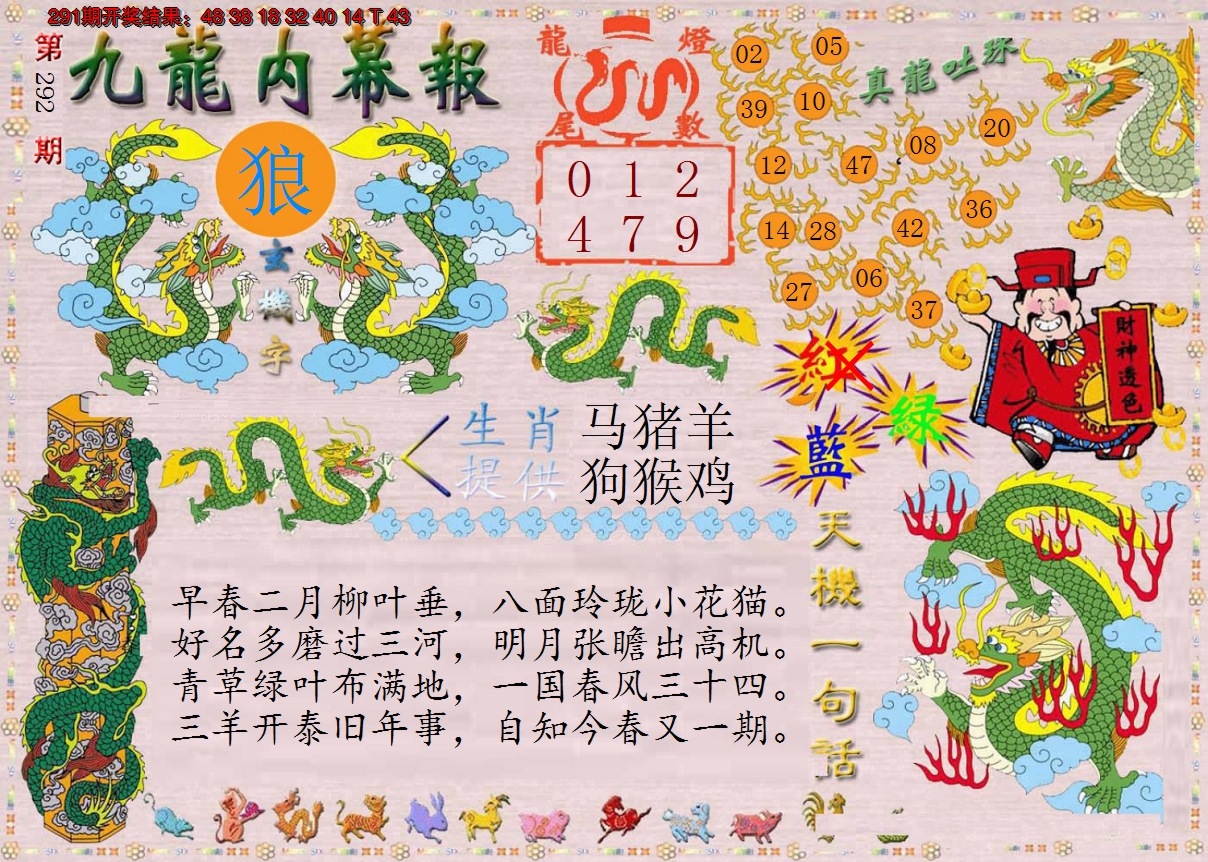 291期开奖结果：48 38 18 32 40 14 T 43
第292期
九龍内幕報
狼
玄機字
龍燈
尾數
0 1 2
4 7 9
真龍吐珠
02 05
39 10
12 47 08 20
14 28 42 36
27 06 37
財神透色
紅
绿
藍
生肖 马猪羊
提供 狗猴鸡
天機一句话
早春二月柳叶垂，八面玲珑小花猫。
好名多磨过三河，明月张瞻出高机。
青草绿叶布满地，一国春风三十四。
三羊开泰旧年事，自知今春又一期。